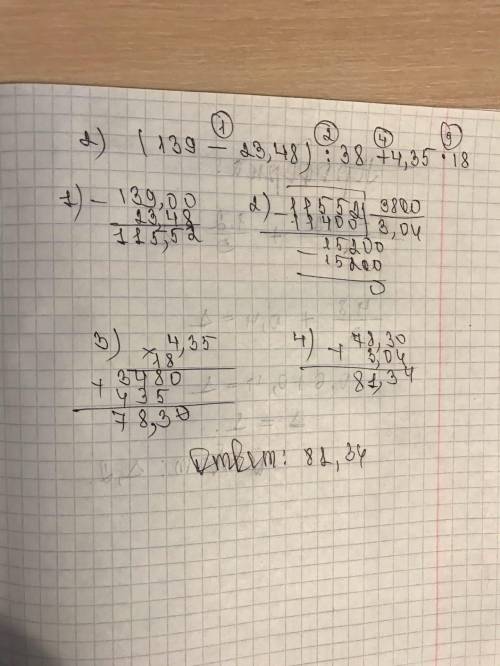 ① ② ④ ③
2) (139 − 23,48) : 38 + 4,35 · 18
1) − 139,00
23,48
115,52
2) − 11552 3800
11400 3,04
− 15200
15200
0
3) × 4,35
18
+ 3480
435
78,30
4) + 78,30
3,04
81,34
Ответ: 81,34